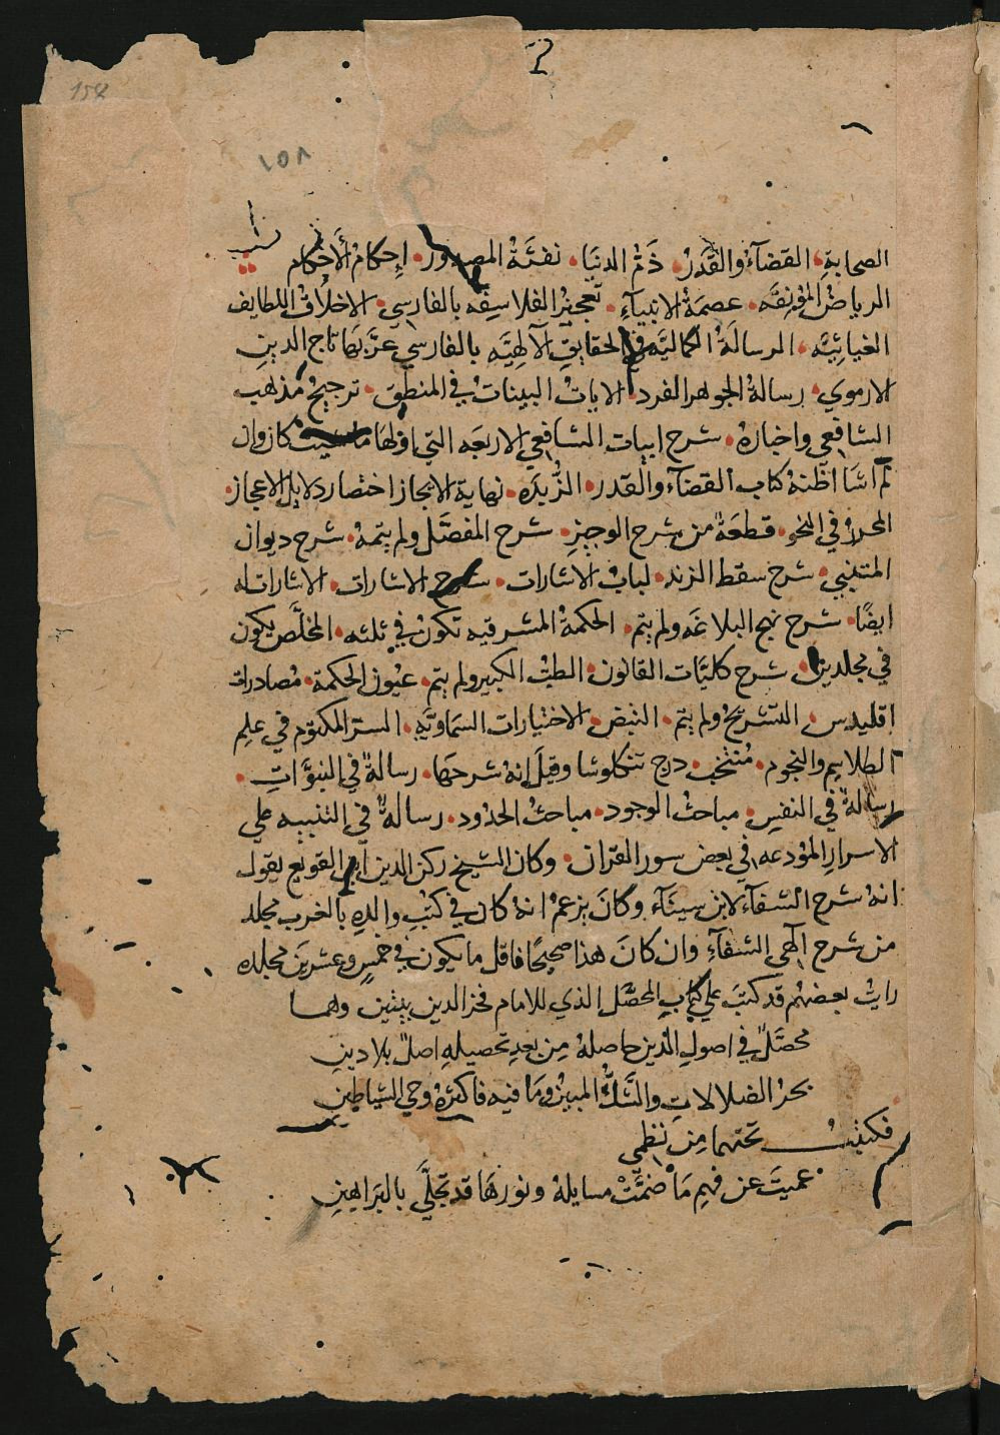 158
١٥٨
الصحابةِ، القضآء والقَدَرُ، ذَمُّ الدنيَا، نفثَةُ المصدور، إحكامُ الأَحكام
الرياضُ المؤنِقَه، عصمَةُ الانبيآءِ، تعجيزُ الفلاسِفَه بالفارسي، الاخلاقُ اللطايف
الغياثِيَّه، الرسالَةُ الكماليَّه في الحقايقِ الآلهيَّه بالفارسي عرَّبَهَا تاج الدين
الارموي، رسالةُ الجوهر الفرد، الاياتُ البيناتُ في المنطق، ترجيحُ مذهب
الشافعي واخبارُهُ، شرح ابيات الشافعي الاربعَه التي اوّلهَا ما شيتَ كان وان
لم اشَا اظنهُ كتاب القضآء والقدر، الزُّبدَه، نهاية الايجاز اختصار دلايل الاعجاز،
المحررُ في النحو، قطعَةٌ من شرح الوجيزِ، شرح المفصَّل ولم يتمهُ، شرح ديوان
المتنبي، شرح سقط الزند، لبابُ الاشارات، شرح الاشارات، الاشارات له
ايضًا، شرح نهج البلاغَه ولم يتم، الحكمةُ المشرقيه تكونُ في ثلثه، الملخَّص يكون
في مجلدين، شرح كليَّات القانون، الطبُّ الكبير ولم يتم، عيُون الحكمة، مُصادرات
اقليدس، التشريحُ ولم يتم، النبض، الاختيارات السمَاويَّه، السرّ المكتوم في علِم
الطلاسِم والنجوم، مُنتخَب، درج تنكلوشا وقيلَ إنهُ شرحهَا، رسالةٌ في النبوَّاتِ،
رسالةٌ في النفسِ، مباحثُ الوجود، مباحثُ الحدُود، رسالةٌ في التنبيه علي
الاسرارِ المُودعه في بعض سور القران، وكان الشيخ ركن الدين ابن القوبع يقول
انهُ شرح الشفآء لابن سينَآء وكانَ يزعمُ انهُ كان في كتبِ والدِهِ بالغرب مجلد
من شرح الهى الشفآءِ وان كانَ هذا صحيحًا فاقل ما يكون في خمسٍ وعشرينَ مجلده
رايتُ بعضهُم قد كتبَ علي كتابِ المحصَّل الذي للامام فخر الدين بيتين وهما
محصَّلٌ في اصولِ الدّين حاصلهُ مِن بعدِ تحصيلهِ اصلٌ بلا دينِ
بحرُ الضلالاتِ والشَّكُّ المبينُ ومَا فيه فاكثرُهُ وحي الشياطينِ
فكتبتُ تحتهما مِن نظمي
عميتَ عن فهمِ مَا ضمَّتْ مسايلهُ ونورهَا قد تجلَّي بالبرَاهينِ